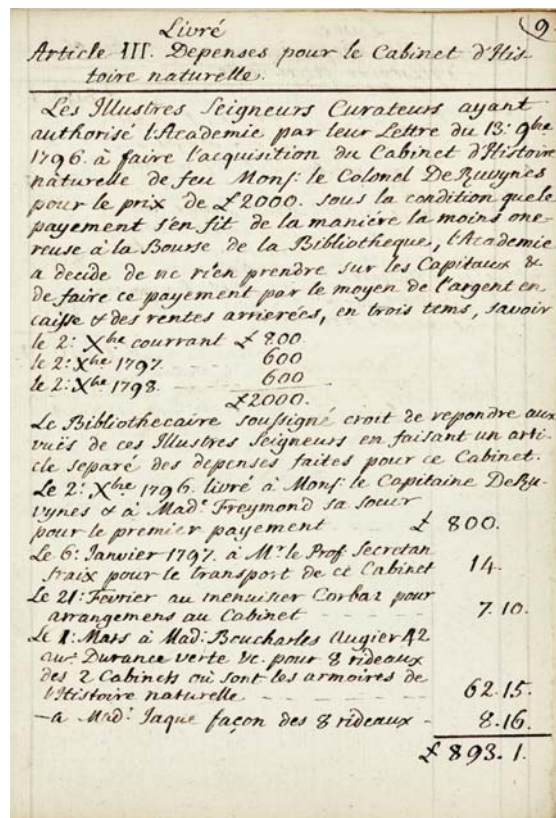 9.
Livré
Article III. Depenses pour le Cabinet d'His-
toire naturelle.
Les Illustres Seigneurs Curateurs ayant
authorisé l'Academie par leur Lettre du 13: 9bre
1796. à faire l'acquisition du Cabinet d'Histoire
naturelle de feu Monsr: le Colonel DeRuvynes
pour le prix de £2000. sous la condition que le
payement s'en fit de la maniere la moins one-
reuse à la Bourse de la Bibliotheque, l'Academie
a decidé de ne rien prendre sur les Capitaux &
de faire ce payement par le moyen de l'argent en
caisse & des rentes arrierées, en trois tems, savoir
le 2: Xbre courrant £ 800
le 2: Xbre 1797. 600
le 2: Xbre 1798. 600
£2000.
Le Bibliothecaire soussigné croit de repondre aux
vuës de ces Illustres Seigneurs en faisant un arti-
cle separé des depenses faites pour ce Cabinet.
Le 2: Xbre 1796. livré à Monsr: le Capitaine DeRu-
vynes & à Made Freymond sa soeur
pour le premier payement £ 800.
Le 6: Janvier 1797. à Mr. le Prof. Secretan
fraix pour le transport de ct Cabinet 14.
Le 21: Fevrier au menuisier Corbaz pour
arrangemens au Cabinet 7. 10.
Le 1: Mars à Mad: Boucharles Augier 42
aun: Durance verte &c. pour 8 rideaux
des 2 Cabinets où sont les armoires de
l'Histoire naturelle 62. 15.
— à Mad: Jaque façon des 8 rideaux - 8. 16.
£ 893. 1.